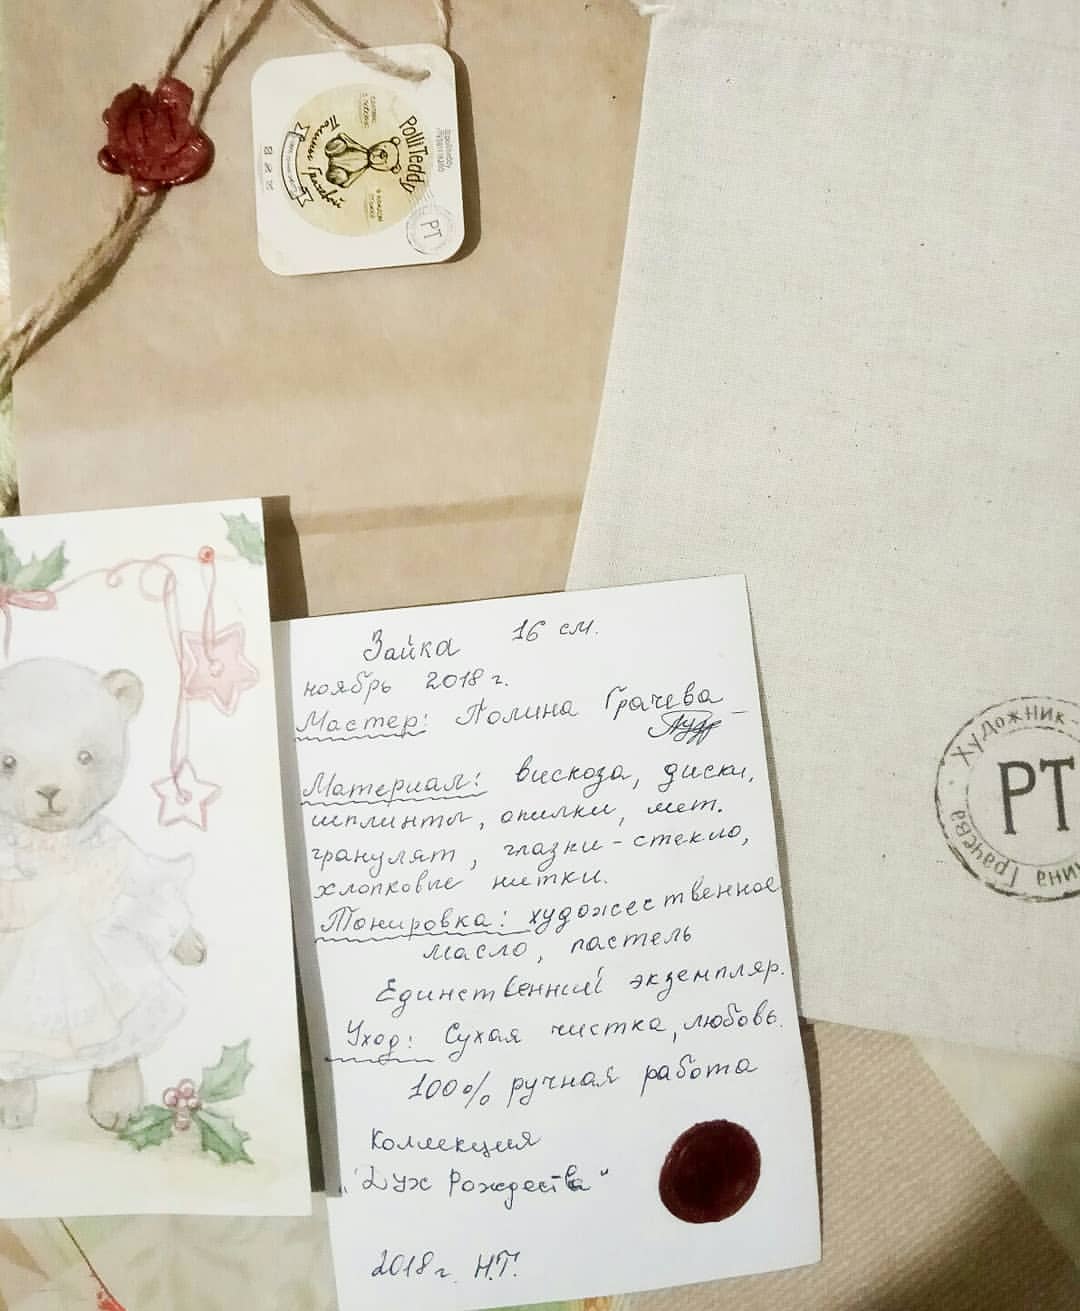 PolliTeddy
Полины Грачевой
PT
Зайка 16 см.
ноябрь 2018 г.
Мастер: Полина Грачева
Материал: вискоза, диски,
шплинты, опилки, мет.
гранулят, глазки - стекло,
хлопковые нитки.
Тонировка: художественное
масло, пастель
Единственный экземпляр.
Уход: Сухая чистка, любовь.
100% ручная работа
Коллекция
"Дух Рождества"
2018 г. Н.Т.
Художник
PT
Грачева